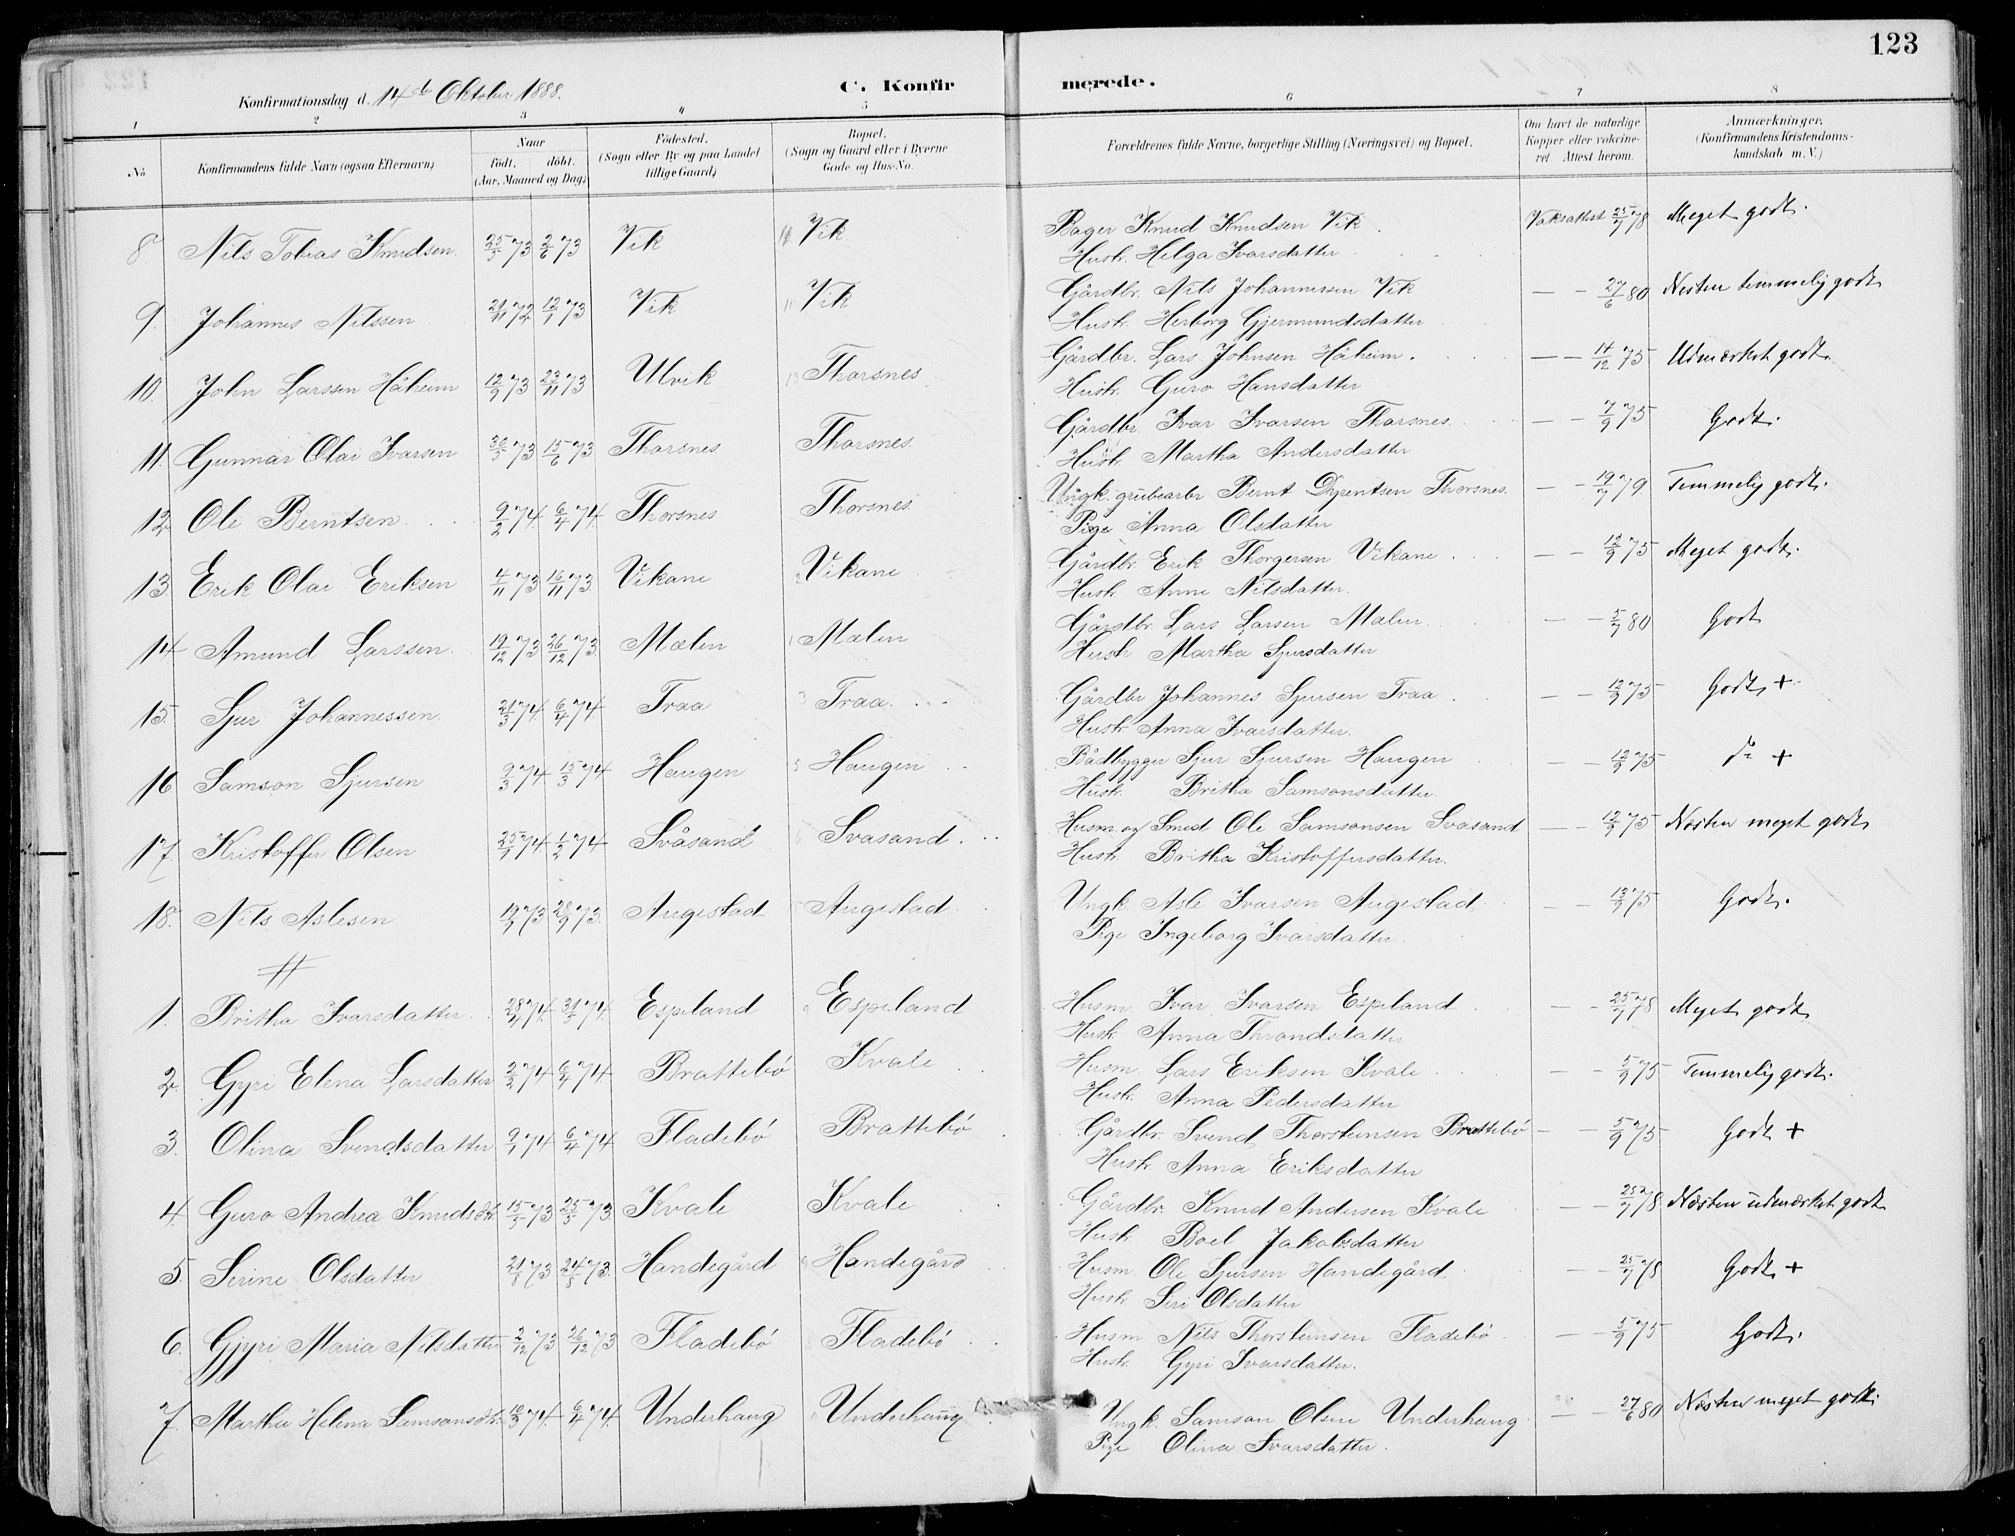 123
Konfirmationsdag d. 14de Oktober 1888.
C. Konfirmerede.
1 2 3 4 5 6 7 8
No
Konfirmandens fulde Navn (ogsaa Efternavn)
Naar
født. døbt.
(Aar, Maaned og Dag)
Fødested.
(Sogn eller By og paa Landet
tillige Gaard)
Bopæl.
(Sogn og Gaard eller i Byerne
Gade og Hus-No.
Forældrenes fulde Navne, borgerlige Stilling (Næringsvei) og Bopæl.
Om havt de naturlige
Kopper eller vakcine-
ret. Attest herom.
Anmærkninger.
(Konfirmandens Kristendoms-
kundskab m. V.)
8. Nils Tobias Knudsen. 25/5 73 2/6 73 Vik Vik Bager Knud Knudsen Vik Vaksattest 25/7 78 Meget godt.
Husk. Helga Ivarsdatter
9. Johannes Nilssen 21/11 72 12/1 73 Vik Vik Gårdbr. Nils Johannessen Vik — - 27/6 80 Næsten temmelig godt
Husk. Herborg Gjermundsdatter
10. John Larssen Håheim 12/9 73 23/11 73 Ulvik Thorsnes Gårdbr. Lars Johnsen Håheim. — - 14/12 75 Udmærket godt.
Husk. Guro Hansdatter
11. Gunnar Olai Ivarsen 30/5 73 15/6 73 Thorsnes Thorsnes Gårdbr. Ivar Ivarsen Thorsnes. — - 7/9 75 Godt.
Husk. Martha Andersdatter
12. Ole Berntsen 9/2 74 6/4 74 Thorsnes Thorsnes Ungk. grubearbr Bernt Dyrentsen Thorsnes. — - 19/7 79 Temmelig godt.
Pige Anna Olsdatter
13. Erik Olai Eriksen 4/11 73 16/11 73 Vikane Vikane Gårdbr. Erik Thorgersen Vikane — - 12/9 75 Meget godt.
Husk. Anne Nilsdatter.
14. Amund Larssen 19/12 73 26/12 73 Mælen Mælen Gårdbr. Lars Larsen Mælen — - 5/7 80 Godt
Husk. Martha Sjursdatter
15. Sjur Johannessen 21/3 74 6/4 74 Traa Traa Gårdbr Johannes Sjursen Traa — - 12/9 75 Godt +
Husk. Anna Ivarsdatter.
16. Samson Sjursen 9/3 74 15/3 74 Haugen Haugen Bådbygger Sjur Sjursen Haugen — - 12/9 75 do +
Husk. Britha Samsonsdatter.
17. Kristoffer Olsen 25/1 74 1/2 74 Svåsand Svasand Husm. og Smed Ole Samsonsen Svasand — - 12/9 75 Næsten meget godt
Husk. Britha Kristoffersdatter.
18. Nils Aslesen 19/9 73 28/9 73 Augestad Augestad Ungk. Asle Ivarsen Augestad — - 13/9 75 Godt.
Pige Ingeborg Ivarsdatter
1. Britha Ivarsdatter 28/4 74 31/5 74 Espeland Espeland Husm. Ivar Ivarsen Espeland — - 25/7 78 Meget godt
Husk. Anna Throndsdatter
2. Gyri Elena Larsdatter 2/2 74 6/4 74 Brattebø Kvale Husm. Lars Eriksen Kvale — - 5/9 75 Temmelig godt.
Husk. Anna Pedersdatter
3. Olina Svendsdatter 9/1 74 6/4 74 Fladebø Brattebø Gårdbr. Svend Thorsteinsen Brattebø — - 5/9 75 Godt +
Husk. Anna Eriksdatter
4. Guro Andrea Knudsdtr. 15/5 73 25/5 73 Kvale Kvale Gårdbr. Knud Andersen Kvale — - 25/7 78 Næsten udmærket godt
Husk. Boel Jakobsdatter
5. Serine Olsdatter 21/8 73 24/8 73 Handegård Handegård Husm. Ole Sjursen Handegård — - 25/7 78 Godt +
Husk. Siri Olsdatter
6. Gjyri Maria Nilsdatter 2/12 73 26/12 73 Fladebø Fladebø Husm Nils Thorsteinsen Fladebø — - 5/9 75 Godt.
Husk. Gyri Ivarsdatter.
7. Martha Helena Samsonsdtr. 16/3 74 6/4 74 Underhaug Underhaug Ungk. Samson Olsen Underhaug — - 27/6 80 Næsten meget godt.
Pige Olina Ivarsdatter.